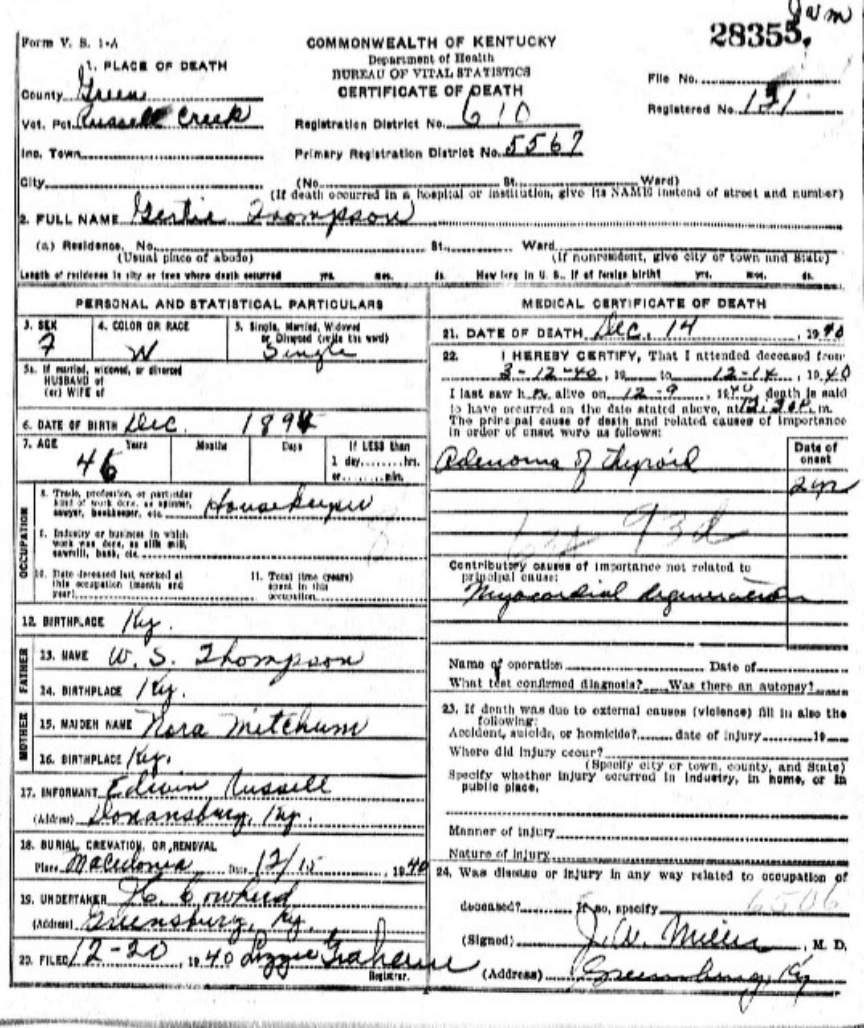 Form V. S. 1-A
COMMONWEALTH OF KENTUCKY
28355
Department of Health
BUREAU OF VITAL STATISTICS
CERTIFICATE OF DEATH
1. PLACE OF DEATH
County Green
File No.
Registered No. 131
Vot. Pct. Russell Creek
Registration District No. 610
Inc. Town
Primary Registration District No. 5567
City (No. St. Ward)
(If death occurred in a hospital or institution, give its NAME instead of street and number)
2. FULL NAME Gertie Thompson
(a) Residence. No. St. Ward
(Usual place of abode) (If nonresident, give city or town and State)
Length of residence in city or town where death occurred yrs. mos. ds. How long in U. S., if of foreign birth? yrs. mos. ds.
PERSONAL AND STATISTICAL PARTICULARS
3. SEX F
4. COLOR OR RACE W
5. Single, Married, Widowed or Divorced (write the word) Single
5a. If married, widowed, or divorced
HUSBAND of
(or) WIFE of
6. DATE OF BIRTH Dec. 1894
7. AGE 46 Years Months Days If LESS than
1 day, hrs.
or min.
OCCUPATION
8. Trade, profession, or particular
kind of work done, as spinner,
sawyer, bookkeeper, etc. Housekeeper
9. Industry or business in which
work was done, as silk mill,
sawmill, bank, etc.
10. Date deceased last worked at
this occupation (month and
year)
11. Total time (years)
spent in this
occupation
12. BIRTHPLACE Ky.
FATHER
13. NAME W. S. Thompson
14. BIRTHPLACE Ky.
MOTHER
15. MAIDEN NAME Nora Mitchum
16. BIRTHPLACE Ky.
17. INFORMANT Edwin Russell
(Address) Donansburg, Ky.
18. BURIAL, CREMATION, OR REMOVAL
Place Macedonia Date 12/15, 1940
19. UNDERTAKER Cowherd
(Address) Greensburg, Ky.
20. FILED 12-20, 1940 Lizzie Graham
Registrar.
MEDICAL CERTIFICATE OF DEATH
21. DATE OF DEATH Dec. 14, 1940
22. I HEREBY CERTIFY, That I attended deceased from
3-12-40, 19 to 12-14, 1940
I last saw her alive on 12-9, 1940 death is said
to have occurred on the date stated above, at m.
The principal cause of death and related causes of importance
in order of onset were as follows:
Date of
onset
Adenoma of thyroid
2 yr
93d
Contributory causes of importance not related to
principal cause:
Myocardial degeneration
Name of operation Date of
What test confirmed diagnosis? Was there an autopsy?
23. If death was due to external causes (violence) fill in also the
following:
Accident, suicide, or homicide? date of injury 19
Where did injury occur?
(Specify city or town, county, and State)
Specify whether injury occurred in industry, in home, or in
public place.
Manner of injury
Nature of injury
24. Was disease or injury in any way related to occupation of
deceased? If so, specify 6506
(Signed) J. W. Miller, M. D.
(Address) Greensburg, Ky